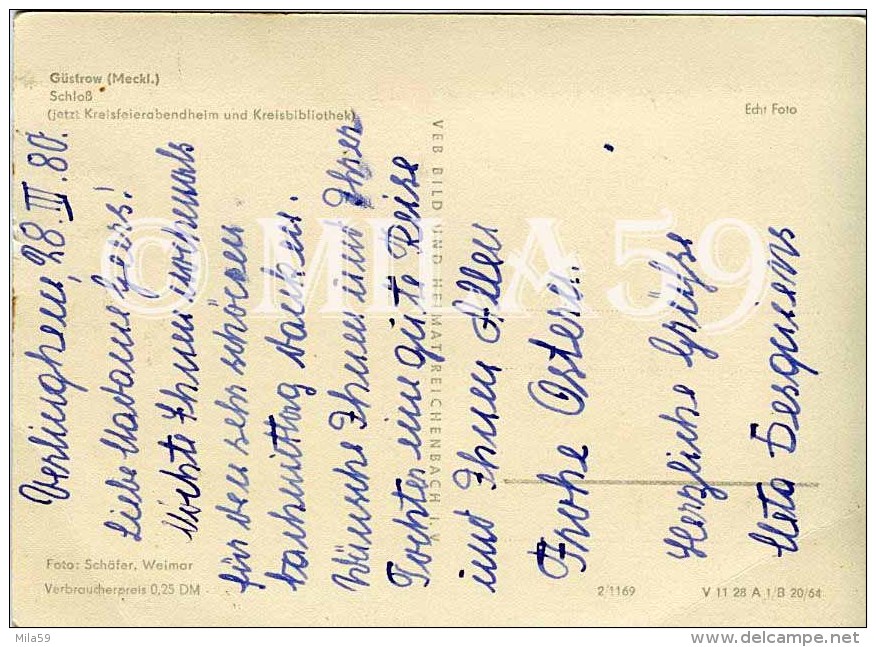 Güstrow (Meckl.)
Schloß
(jetzt Kreisfeierabendheim und Kreisbibliothek)
Echt Foto
VEB BILD UND HEIMAT REICHENBACH I. V.
Verlinghem, 28.III.80.
Liebe Madame
Möchte Ihnen nochmals
für den sehr schönen
Nachmittag danken.
Wünsche Ihnen und Ihrer
Tochter eine gute Reise
und Ihnen Allen
Frohe Ostern.
Herzliche Grüße
Meta Desquiens
Foto: Schäfer, Weimar
Verbraucherpreis 0,25 DM
2/1169
V 11 28 A 1/B 20/64
© MILA59
Mila59
www.delcampe.net